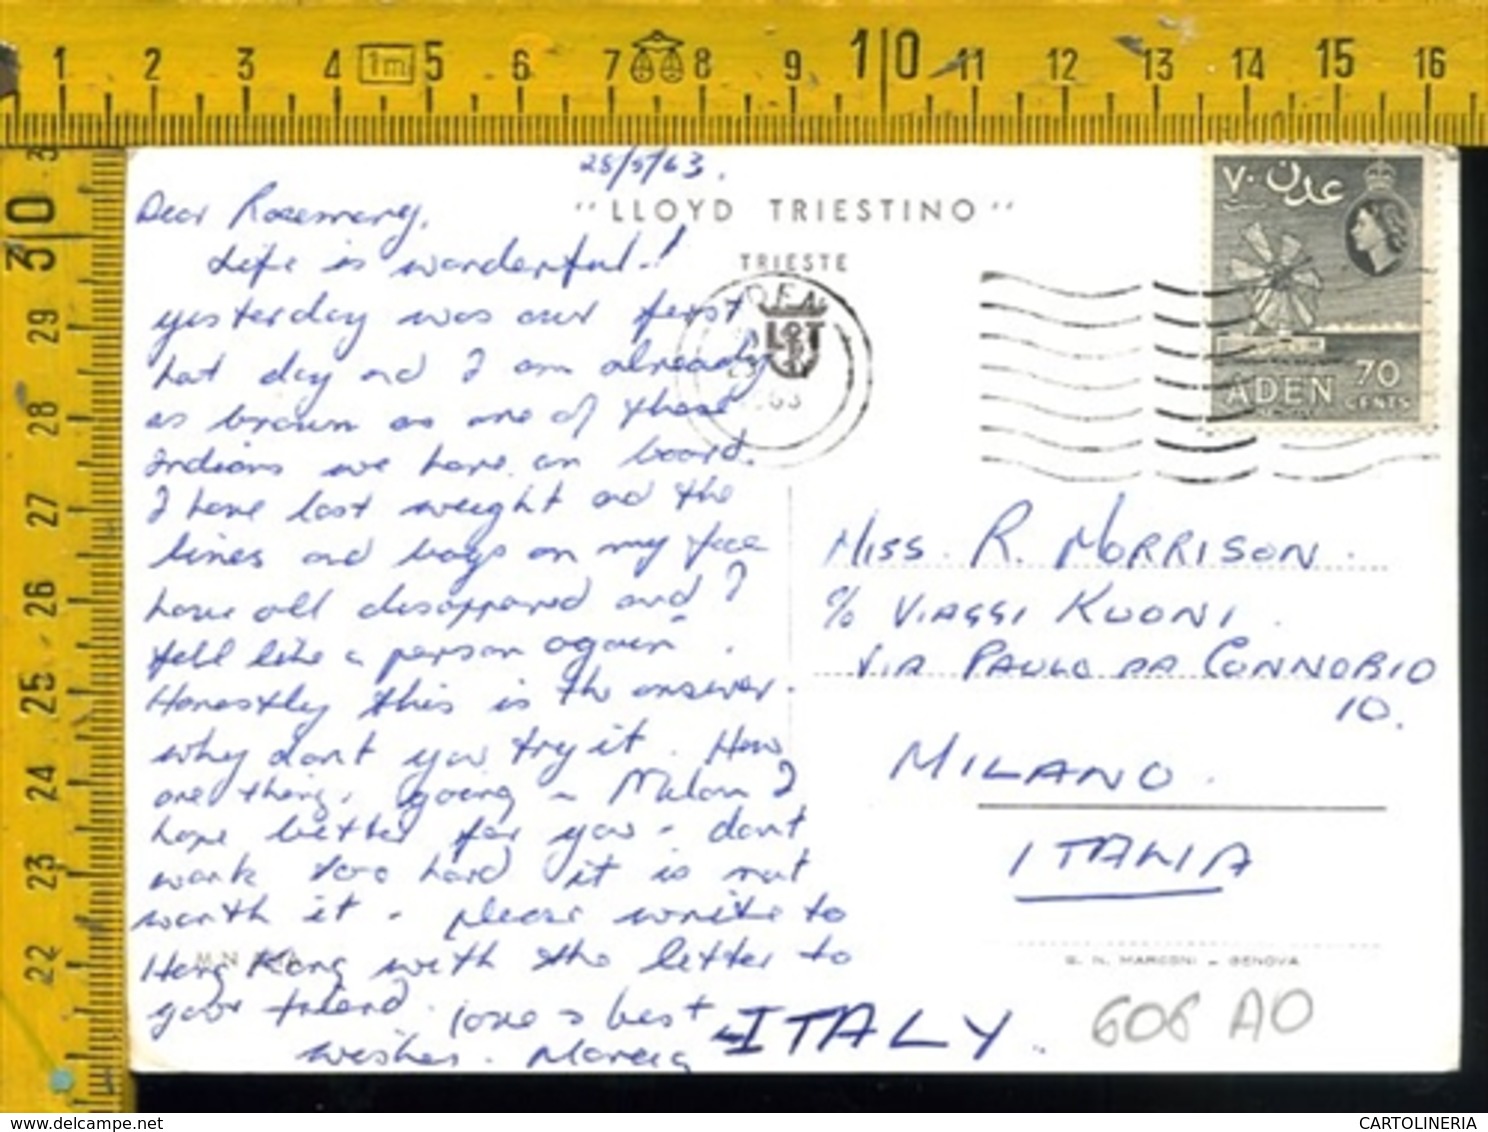 1 2 3 4 1m 5 6 7 8 9 10 11 12 13 14 15 16
30
29
28
27
26
25
24
23
22
28/5/63.
"LLOYD TRIESTINO"
TRIESTE
LT
ADEN
1963
٧٠ عدن
ADEN 70 CENTS
Dear Rosemary,
Life is wonderful!
yesterday was our first
hot day and I am already
as brown as one of these
Indians we have on board.
I have lost weight and the
lines and bags on my face
have all disappeared and I
fell like a person again.
Honestly this is the answer.
why dont you try it. How
are things going in Milan I
hope better for you - dont
work too hard it is not
worth it - please write to
Hong Kong with the letter to
your friend. love & best
wishes.
MISS. R. MORRISON.
c/o VIAGGI KUONI.
VIA PAULO DA CONNOBIO
10.
MILANO.
ITALIA
M/N
G. N. MARCONI - GENOVA
ITALY
606 AO
CARTOLINERIA